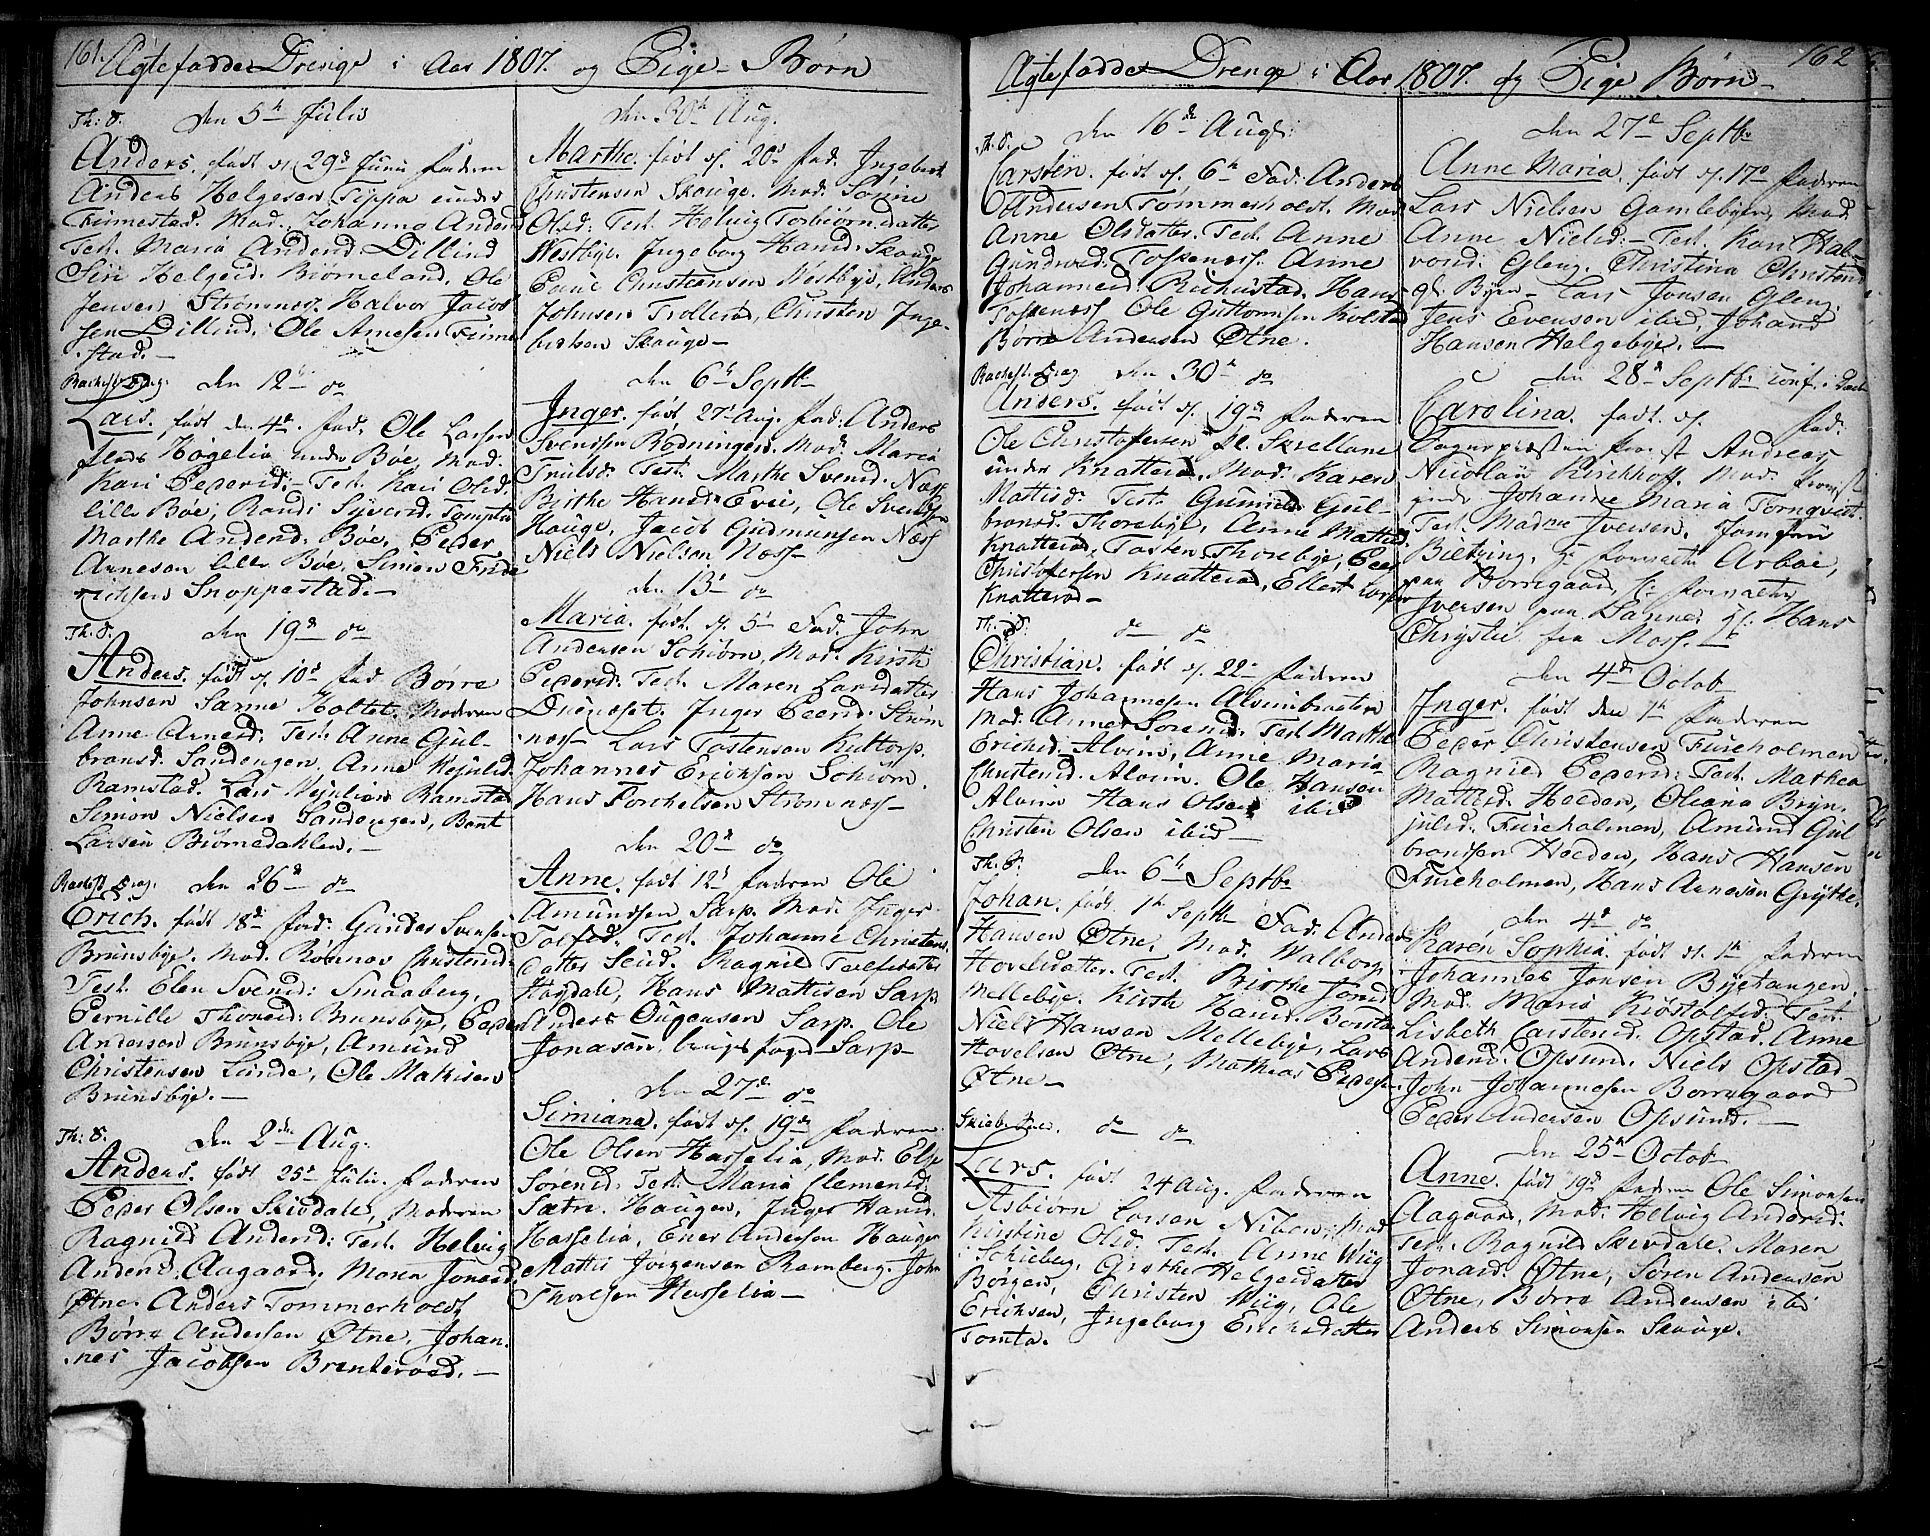 161. Ægtefødde Drenge i Aar 1807. og Pige-Børn
Th: S. Den 5te Julii
Anders, født d. 29de Junii Faderen
Anders Helgesen Tippa under
Finnestad. Mod. Johanna Andersd
Test. Maria Andersd: Dillind
Siri Helgesd: Biørneland, Ole
Jensen Strømnes, Halvor Jacob
sen Dillind, Ole Arnesen Finne
stad.-
Den 12te do
Lars, født den 4de. fad. Ole Larsen
Høgelia under Bøe, Mod.
Kari Pedersd:- Test. Kari Olsd.
lille Bøe, Randi Syversd.
Marthe Andersd: Bøe, Peder
Arnesen lille Bøe, Simon Fride
richsen Snoppestad.-
Th: S. Den 19de do
Anders. født d. 10de fad Børre
Johnsen Holtet. Moderen
Anne Arnesd: Test. Anne Gul-
bransd. Sandengen. Anne
Ramstad. Lars Ramstad
Simon Nielsen Sandengen, Bent
Larsen Biørnedahlen.-
Den 26de do
Erich. født 18de fad: Gunder Svensen
Brunsbye. Mod. Rønnov Christensd:
Test. Elen Svensd: Smaaberg,
Pernille Thoresd: Brunsbye, Peder
Andersen Brunsbye, Amund
Christensen Lunde, Ole Mathisen
Brunsbye.-
Th: S. Den 2den Aug.
Anders. født 25de Julii. Faderen
Peder Olsen Skivdale, Moderen
Ragnild Andersd: Test. Helvig
Andersd. Aagaard. Maren Jonasd.
Øtne. Anders Tommerholdt
Børre Andersen Øtne, Johan
nes Jacobsen Brenterød.-
Den 30te Aug.
Marthe. født d. 20de fad. Ingebret
Christensen Skouge. Mod. Sorine
Olsd: Test. Helvig Torbiørnsdatter
Westbye. Ingeborg Hansd: Skouge
Christensen Westbye, Anders
Johnsen Trollerød, Christen Inge-
bretsen Skouge-
Den 6te Septb.
Inger. født 27de Aug. fad. Anders
Svendsen Rødningen. Mod. Maria
Truelsd. Test. Marthe Svensd. Næss
Birthe Hansd. Evie, Ole Svensen
Hauge, Jacob Gudmunsen Næss
Niels Nielsen Næss-
Den 13de do
Maria. født d. 5te Fad. John
Andersen Schiørn, Mod. Kirsti
Pedersd. Test. Maren Larsdatter
Inger Pedersd. Strøm
næss- Lars Tostensen Kultorp.
Johannes Ericksen Schiørn.
Hans Torchelsen Strømnæss-
Den 20de do
Anne. født 12te faderen Ole
Amundsen Sarp. Mod. Inger
Tolfsd. Test. Johanne Christens
datter Ragnild Tolfsdatter
Hasdale, Hans Mattisen Sarp
Anders Sarp. Ole
Jonasen, Sarp-
Den 27de do
Simiana. født d. 19de Faderen
Ole Olsen Hasselia, Mod. Else
Sørensd: Test. Maria Clemensd:
Sætre. Haugen, Inger Hansd.
Hasselia, Ener Andersen Haugen
Mattis Jørgensen Ramberg. John
Thoresen Hasselia-
Ægtefødde Drenge i Aar 1807. og Pige Børn- 162
Th: S. Den 16de Aug:
Carsten. født d. 6te Fad: Anders
Andersen Tommerholdt. Mod
Anne Olsdatter. Test. Anne
Gundersd: Toskenæss. Anne
Johannesd: Hans
Toskenæss Ole Guttormsen Kolstad
Børre Andersen Øtne.
Den 30te do
Anders. født d. 19de Faderen
Ole Christophersen Skrellane
under Knatterød. Mod. Karen
Mattisd: Test. Gunnild Gul
bransd: Thorebye, Anne Mattisd.
Knatterød, Tosten Thorebye, Peder
Christophersen Knatterød, Ellert Larsen
Knatterød-
Th: S. do do
Christian. født d. 22de Faderen
Hans Johannesen Alvimbraaten
Mod: Anne Sørensd: Test. Marthe
Erichsd. Alvim, Anne Maria
Christensd. Alvim. Ole Hansen
Alvim Hans Olsen ibid
Christen Olsen ibid-
Th: S. Den 6te Septb:
Johan. født 1te Septb. Fad. Anders
Hansen Øtne. Mod. Walborg
Hovelsdatter. Test. Birthe Jonsd.
Mellebye. Kirsti Hansd.
Niels Hansen Mellebye, Lars
Hovelsen Øtne, Mathias Pedersen
Øtne-
do do
Lars. født 24 Aug. Faderen
Asbiørn Larsen Mod
Kirstine Olsd. Test. Anne Wiig
Schieberg, Grethe Helgesdatter
Borgen, Christen Wiig, Ole
Ericksen, Ingeborg Ericksdatter
Tomta.
Den 27de Septb.
Anne Maria. født d. 17de Faderen
Lars Nielsen Gamlebyen, Mod.
Anne Nielsd:- Test. Kari Hal-
vorsd: Gleng. Christina Christensd
gl. Byen- Lars Jonsen Gleng.
Jens Evensen ibid, Johans
Hansen Helgebye.-
Den 28de Septb. conf. i
Carolina. født. d. Fad:
Andreas
Nicolay Kirkhoff. Mod.
Johanne Maria Tornqvist
Test. Madme Iversen, Jomfrue
Arboe,
paa Borregaard,
Iversen paa Sanne, Hans
Chrystie fra Moss.-
Den 4de Octob
Inger. født den 1te Faderen
Peder Christensen Fureholmen
Ragnild Pedersd: Test. Mathea
Mattisd: Heeden, Oliana Bryn
julsd: Fureholmen, Amund Gul
bransen Heeden, Hans Hansen
Fureholmen, Hans Arnesen Grytte.
Den 4de do
Karen Sophia. født d. 1te Faderen
Johannes Jonsen Byetangen,
Mod: Maria Kiøstolfsd: Test.
Lisbeth Carstensd. Opstad. Anne
Andersd: Opsund. Niels Opstad
John Johannesen Borregaard
Peder Andersen Opsund.-
Den 25de Octob
Anne. født 19de Faderen Ole Simonsen
Aagaard, Mod: Helvig Andersd:
Test. Ragnild Skivdale. Maren
Jonasd: Øtne, Søren Andersen
Øtne, Børre Andersen ibid
Anders Simonsen Skouge.